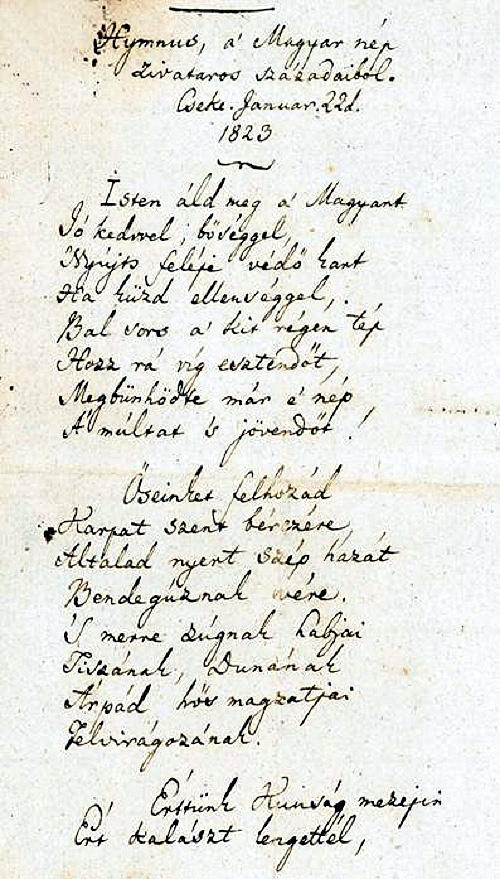 Hymnus, a' Magyar nép
zivataros századaiból.
Cseke. Januar. 22d.
1823
Isten áld meg a' Magyart
Jó kedvvel, bőséggel,
Nyujts feléje védő kart
Ha küzd ellenséggel,
Bal sors a' kit régen tép
Hozz rá víg esztendőt,
Megbünhödte már e' nép
A' múltat 's jövendőt!
Őseinket felhozád
Kárpát szent bérczére,
Általad nyert szép hazát
Bendegúznak vére.
'S merre zúgnak habjai
Tiszának, Dunának
Árpád hős magzatjai
Felvirágozának.
Értünk Kunság mezejin
Ért kalászt lengettél,